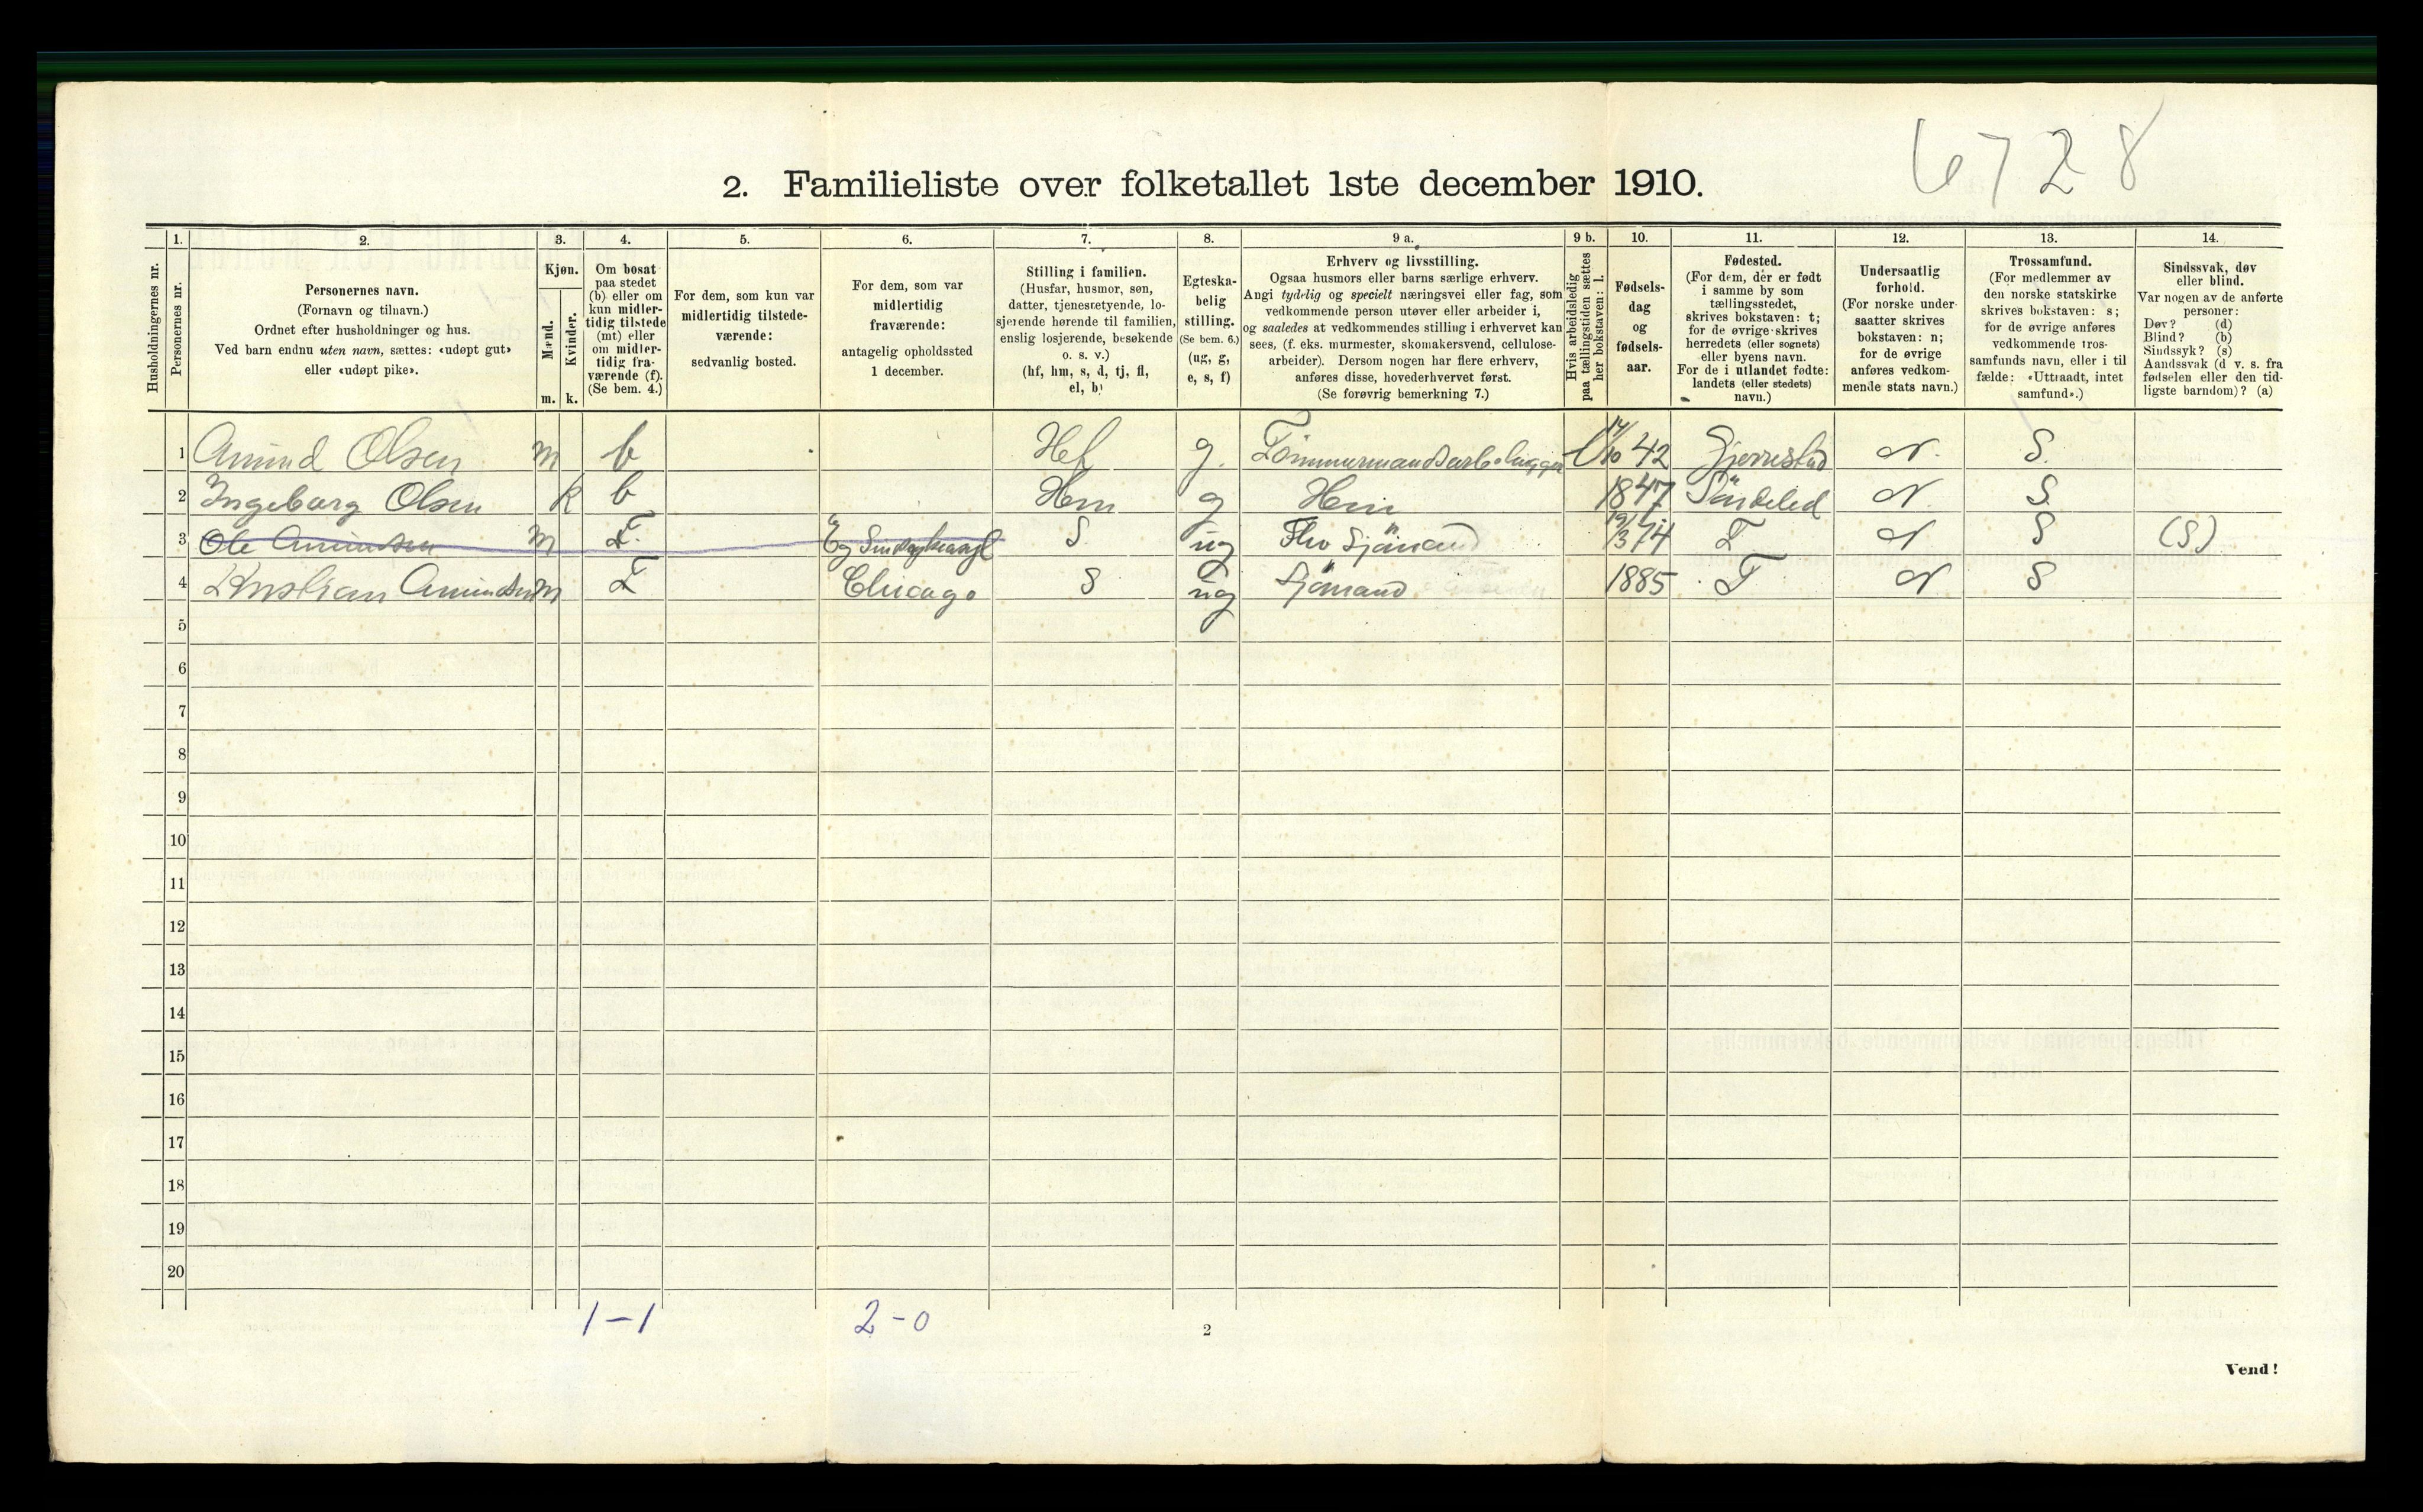 6728
2. Familieliste over folketallet 1ste december 1910.
Husholdningernes nr.
1. Personernes nr.
2. Personernes navn.
(Fornavn og tilnavn.)
Ordnet efter husholdninger og hus.
Ved barn endnu uten navn, sættes: «udøpt gut»
eller «udøpt pike».
3. Kjøn.
Mænd. m.
Kvinder. k.
4. Om bosat
paa stedet
(b) eller om
kun midler-
tidig tilstede
(mt) eller
om midler-
tidig fra-
værende (f).
(Se bem. 4.)
5. For dem, som kun var
midlertidig tilstede-
værende:
sedvanlig bosted.
6. For dem, som var
midlertidig
fraværende:
antagelig opholdssted
1 december.
7. Stilling i familien.
(Husfar, husmor, søn,
datter, tjenesretyende, lo-
sjerende hørende til familien,
enslig losjerende, besøkende
o. s. v.)
(hf, hm, s, d, tj, fl,
el, b)
8. Egteska-
belig
stilling.
(Se bem. 6.)
(ug, g,
e, s, f)
9 a. Erhverv og livsstilling.
Ogsaa husmors eller barns særlige erhverv.
Angi tydelig og specielt næringsvei eller fag, som
vedkommende person utøver eller arbeider i,
og saaledes at vedkommendes stilling i erhvervet kan
sees, (f. eks. murmester, skomakersvend, cellulose-
arbeider). Dersom nogen har flere erhverv,
anføres disse, hovederhvervet først.
(Se forøvrig bemerkning 7.)
9 b. Hvis arbeidsledig
paa tællingstiden sættes
her bokstaven: l.
10. Fødsels-
dag
og
fødsels-
aar.
11. Fødested.
(For dem, der er født
i samme by som
tællingsstedet,
skrives bokstaven: t;
for de øvrige skrives
herredets (eller sognets)
eller byens navn.
For de i utlandet fødte:
landets (eller stedets)
navn.)
12. Undersaatlig
forhold.
(For norske under-
saatter skrives
bokstaven: n;
for de øvrige
anføres vedkom-
mende stats navn.)
13. Trossamfund.
(For medlemmer av
den norske statskirke
skrives bokstaven: s;
for de øvrige anføres
vedkommende tros-
samfunds navn, eller i til
fælde: «Uttraadt, intet
samfund».)
14. Sindssvak, døv
eller blind.
Var nogen av de anførte
personer:
Døv? (d)
Blind? (b)
Sindssyk? (s)
Aandssvak (d v. s. fra
fødselen eller den tid-
ligste barndom)? (a)
1 Amund Olsen m b Hf g. l 14/10 42 Gjerrestad N. S.
2 Ingeborg Olsen k b Hm g Hm 1847 Söndeled N S.
3 Ole Amundsen m F. S ug Sjömand 74 T N S (S)
4 Kristian Amundsen m F Chicago S ug Sjömand 1885 T N S
5
6
7
8
9
10
11
12
13
14
15
16
17
18
19
20
1-1 2-0
2
Vend!